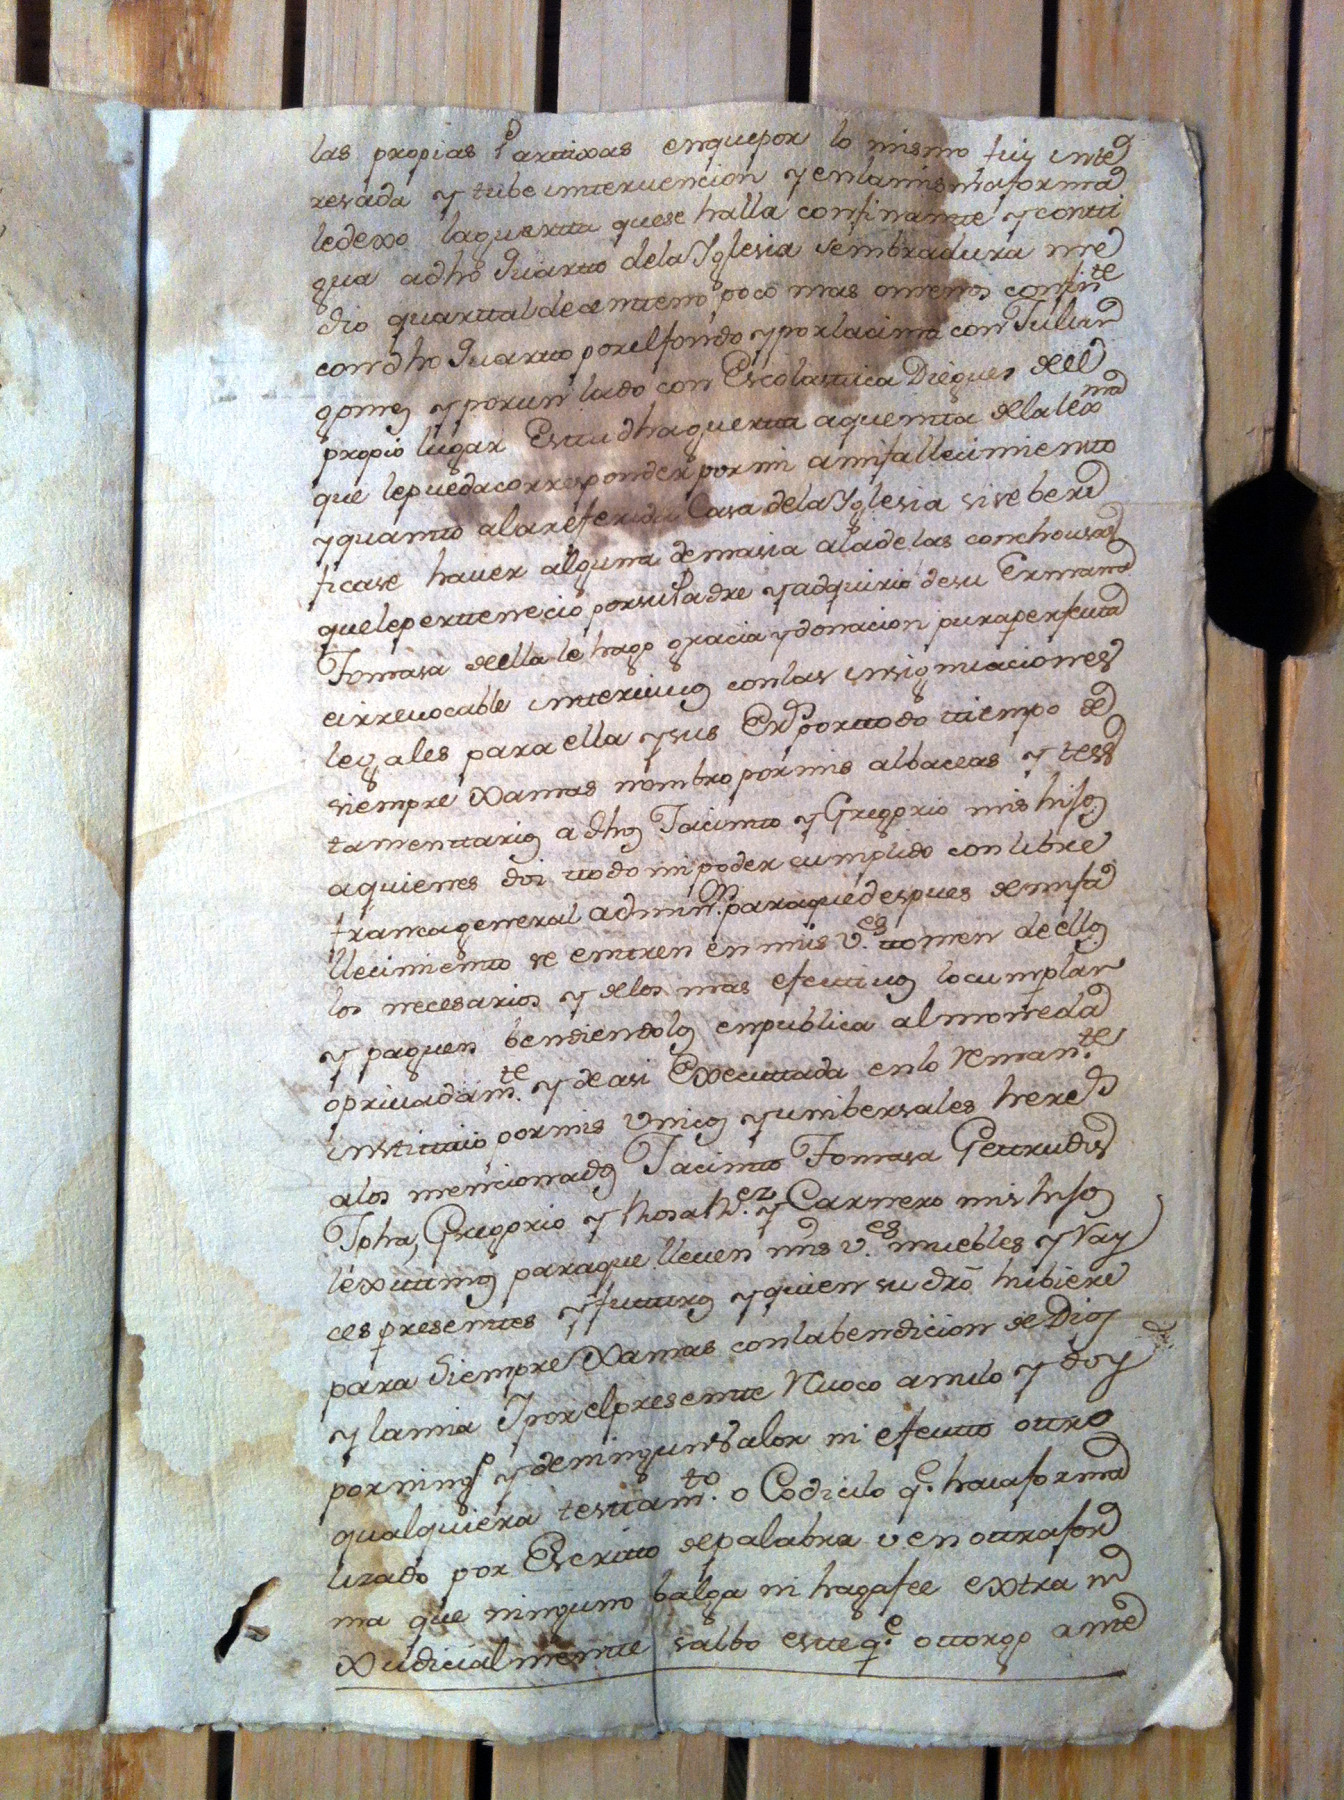 las propias Partixas enquepor lo mismo fui inte
resada y tube intervencion y enlamismaforma
ledexo laguertta quese halla confinantte y contti
gua adho Quartto dela Yglesia sembradura me
dio quarttal decentteno poco mas omenos confinte
condho Quartto porelfondo y porlacima con Julian
gomez y porun lado con Escolasttica Dieguez del
propio lugar Estta dhaguertta aquentta delalexma
que lepuedacorresponder por mi amifallecimientto
y quantto alareferida Casa dela Yglesia sisebere
ficase haver alguna demasia aladelas conchousas
queleperttenecio porsuPadre y adquirio desu Ermana
Tomasa della le hago gracia y donacion puraperfectta
eirrevocable intterbivos conlas insignuaciones
legales para ella y sus Erds porttodo ttiempo de
siempre Xamas nombro pormis albaceas y tes
tamenttarios a dhos Jacintto y Gregorio mis hijos
aquienes doi ttodo mi poder cumplido con libre
francageneral admin.on paraquedespues de mi fa
llecimientto se enttren en mis v.es ttomen de ellos
los necesarios y delos mas efecttivos locumplan
y paguen bendiendolos enpublica almoneda
oprivadam.te y de asi Executtada enlo Reman.te
insttittuio pormis Unicos y unibersales hereds
alos mencionados Jacintto Tomasa Gettrudis
Jpha, Gregorio y Rosa R.ez y Carnero mis hijos
lexittimos paraque lleven mis v.es muebles y Ray
ces presenttes y futturos y quien su dro hubiere
para Siempre Xamas conlabendicion de Dios
y la mia Y por elpresentte Revoco anulo y doy
por ningo y deningun Balor ni efectto ottro
qualquiera testtam.to o Codicilo q.e haiaforma
lizado por Escritto depalabra v en ottrafor
ma que ninguno balga ni hagafee extra ni
Xudicialmentte salbo estte q.e ottorgo ante